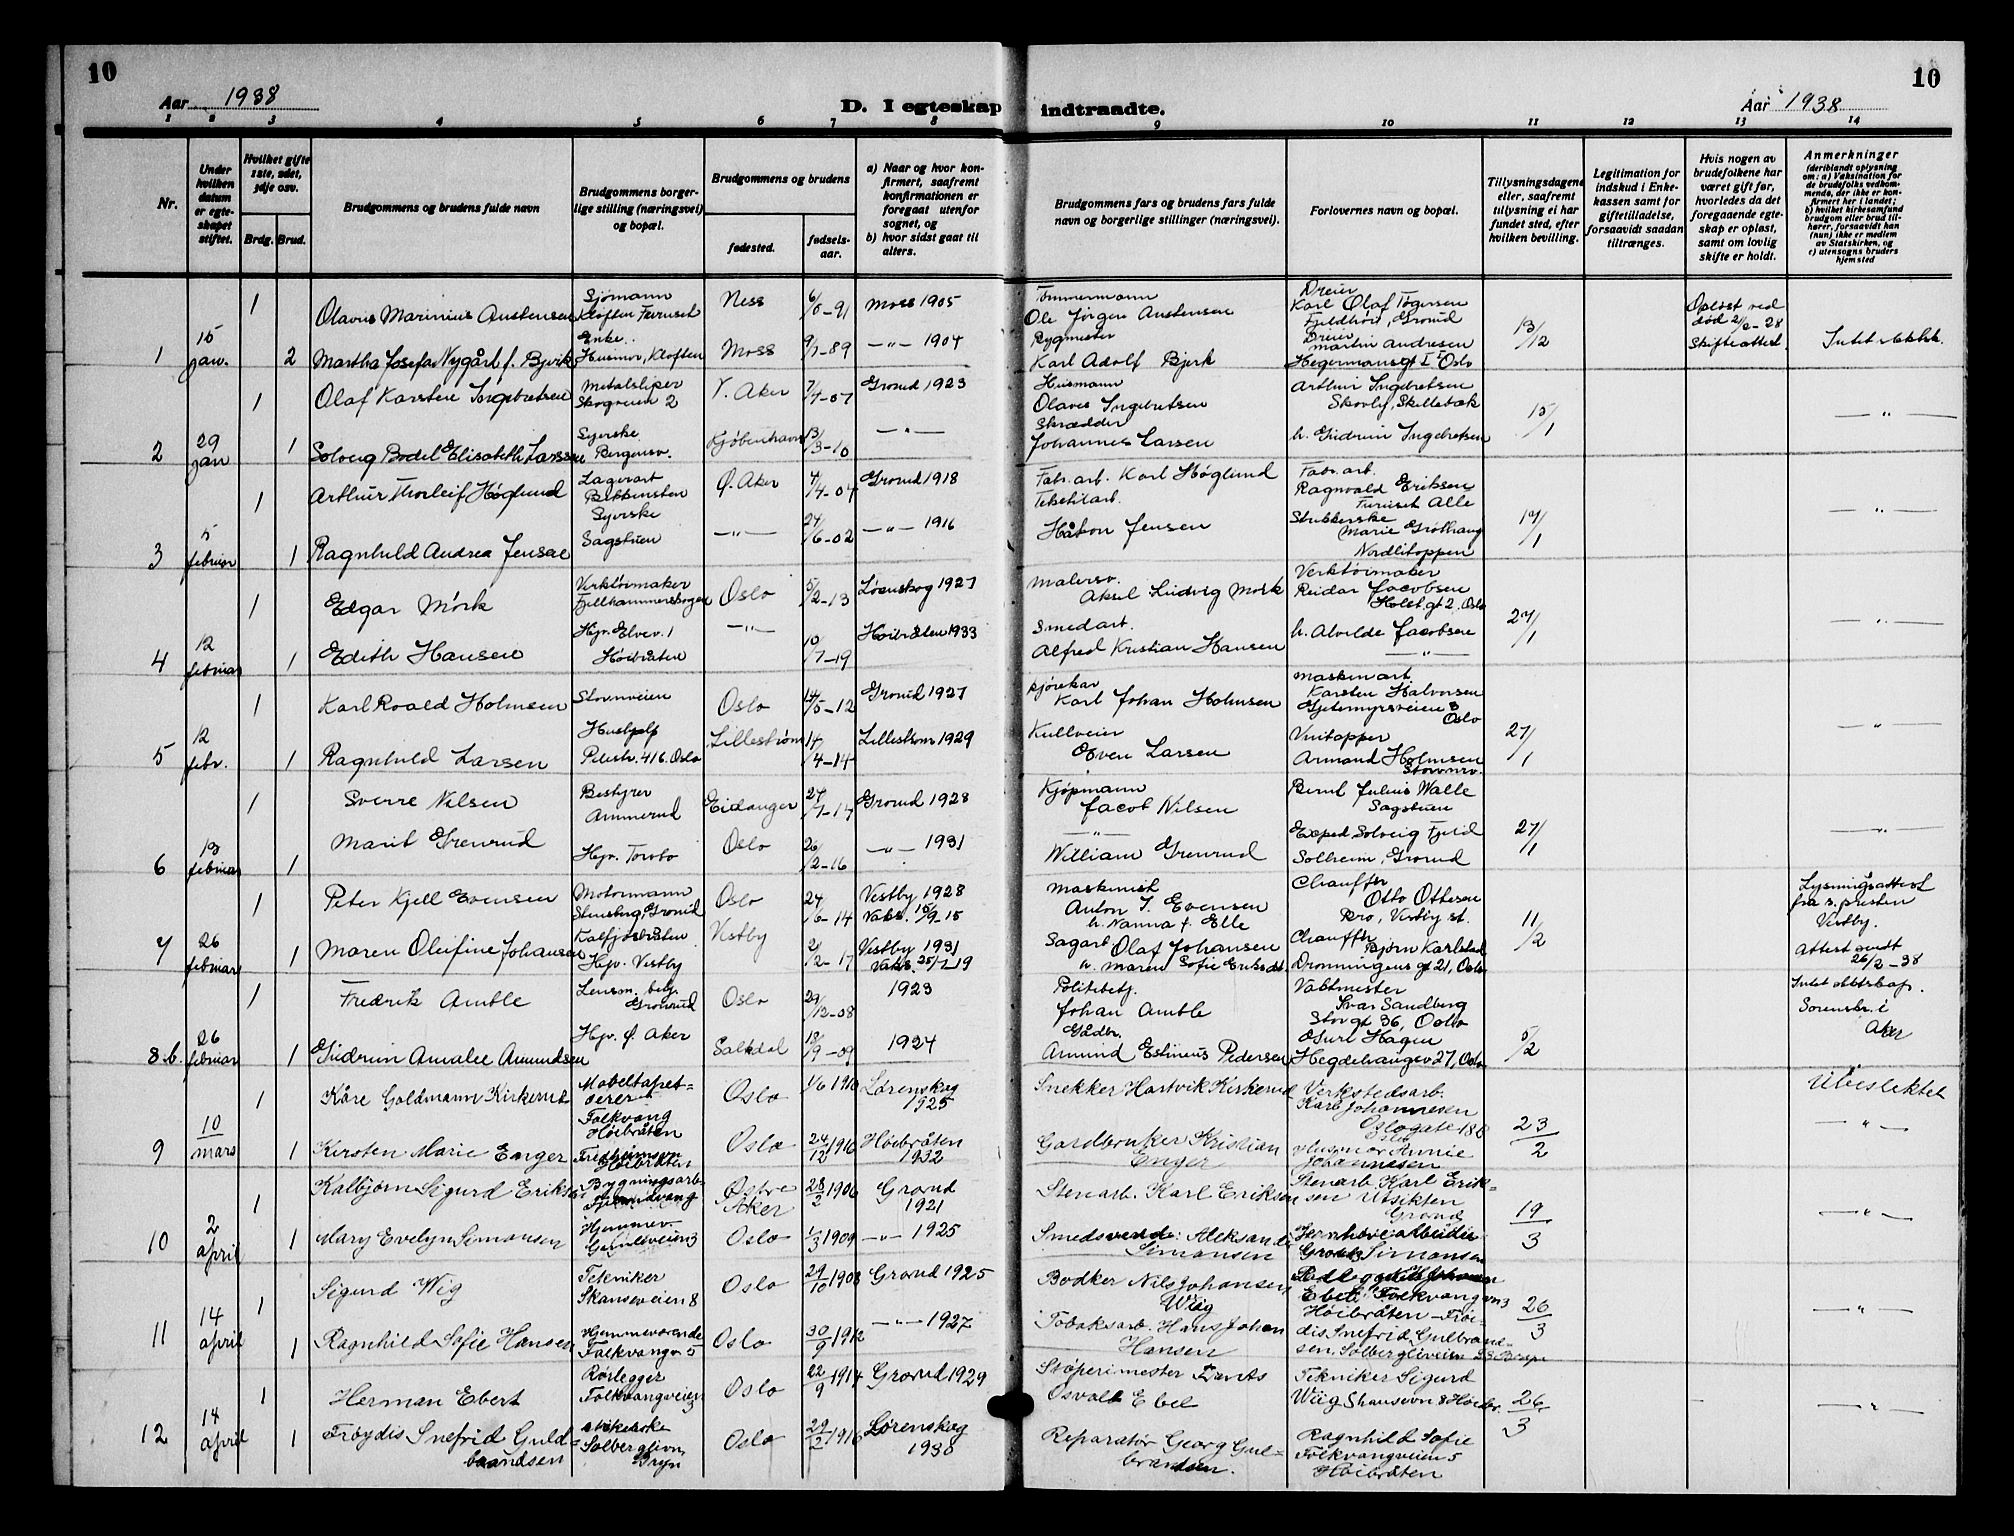 10
10
Aar 1938
D. I egteskap indtraadte.
Aar 1938
1 2 3 4 5 6 7 8 9 10 11 12 13 14
Nr.
Under hvilken datum er egteskapet stiftet.
Hvilket gifte 1ste, 2det, 3dje osv.
Brdg. Brud.
Brudgommens og brudens fulde navn
Brudgommens borgerlige stilling (næringsvei) og bopæl.
Brudgommens og brudens
fødested.
fødselsaar.
a) Naar og hvor konfirmert, saafremt konfirmationen er foregaat utenfor sognet, og
b) hvor sidst gaat til alters.
Brudgommens fars og brudens fars fulde navn og borgerlige stillinger (næringsvei).
Forlovernes navn og bopæl.
Tillysningsdagene eller, saafremt tillysning ei har fundet sted, efter hvilken bevilling.
Legitimation for indskud i Enkekassen samt for giftetilladelse, forsaavidt saadan tiltrænges.
Hvis nogen av brudefolkene har været gift før, hvorledes da det foregaaende egteskap er opløst, samt om lovlig skifte er holdt.
Anmerkninger
(deriblandt oplysning om: a) Vaksination for de brudefolks vedkommende, der ikke er konfirmert her i landet;
b) hvilket kirkesamfund brudgom eller brud tilhører, forsaavidt han (hun) ikke er medlem av Statskirken, og
c) utensogns bruders hjemsted
1 Olavus Marinius Austensen Sjømann Kløften Furuset Ness 6/8-91 Moss 1905 Tømmermann Ole Jørgen Austensen Dreier Karl Olaf Tøgersen Grorud Opløst ved død 2/2-28
15 jan. 2 Martha Josefa Nygård f. Bjerk Enke. Husmor, Kløften Moss 9/7-89 -"- 1904 Rygmester Karl Adolf Bjerk Dreier Martin Andresen Hegermansgt Oslo 13/12 Skifteattest. Intet slektsk.
1 Olaf Karsten Ingebretsen Metalsliper Skogveien 2 V. Aker 7/4-07 Grorud 1923 Husmann Olaves Ingebretsen Arthur Ingebretsen Skovly, Skillebæk
2 29 jan 1 Solveig Bodel Elisabeth Larssen Syerske Bergensv. Kjøbenhavn 13/3-10 -"- Skrædder Johannes Larsen h. Gudrun Ingebretsen 15/1 -"-
1 Arthur Thorleif Høglund Lagerarb Ø. Aker 4/4-04 Grorud 1918 Fabr.arb. Karl Høglund Fabr.arb. Ragnvald Eriksen Furuset Alle
3 5 februar 1 Ragnhild Andrea Jensen Syerske Sagstuen -"- 24/6-02 -"- 1916 Tekstilarb. Håkon Jensen Marie Grothaug Nordlitoppen 17/1 -"-
1 Edgar Mörk Verktøimaker Fjellhammerskogen Oslo 5/2-13 Lørenskog 1927 Malersv. Aksel Ludvig Mörk Verktøimaker Reidar Jacobsen Holst.gt 2, Oslo
4 12 februar 1 Edith Hansen Hjv. Elvev. 1 Høibråten -"- 10/7-19 Høibråten 1933 Smedarb. Alfred Kristian Hansen h. Alvilde Jacobsen -"- 27/1 -"-
1 Karl Roald Holmsen Stovnveien Oslo 14/5-12 Grorud 1927 Kjørekar Karl Johan Holmsen Maskinarb. Karsten Halvorsen Gjetemyrsveien 3 Oslo
5 12 febr. 1 Ragnhild Larsen Hushjelp Pilestr. 41 b. Oslo Lillestrøm 14/4-14 Lillestrøm 1929 Even Larsen Vintapper Armand Holmsen Stovnrv. 27/1 -"-
1 Sverre Nilsen Bestyrer Ammerud Eidanger 27/7-14 Grorud 1928 Kjøpmann Jacob Nilsen Bernt Julius Walle Sagstuen
6 13 februar 1 Marit Grenrud Hjv. Torsbo Oslo 26/2-16 -"- 1931 -"- William Grenrud Exped. Solveig Fjeld Solheim, Grorud 27/1 -"-
1 Peter Kjell Evensen Motormann Stensberg, Grorud Oslo 24/6-14 Vestby 1928 Vaks. 15/9-15 Maskinist Anton J. Evensen h. Nanna f. Elle Chauffør Otto Ottesen Bro, Vestby st. Lysningsattest fra s. presten Vestby.
7 26 februar 1 Maren Olufine Johansen Hjv. Vestby Vestby 2/2-17 Vestby 1931 Vaks. 25/7 19 Sagarb. Olaf Johansen h. Maren Sofie Eriksdt. Chauffør Bjørn Karlstad Dronningens gt 21, Oslo 11/2 Attest sendt 26/2-38
1 Fredrik Amble Lensm. betj. Grorud Oslo 29/12-08 1923 Politibetj. Johan Amble Vaktmester Ivar Sandberg Storgt 36, Oslo Intet slektskap. Sorenskr. i Aker
8 b. 26 februar 1 Gudrun Amalie Amundsen Hjv. Ø. Aker Saltdal 18/9-09 1924 Gårdbr. Amund Estinus Pedersen Guri Hagen Hegdehaugsv 27, Oslo 5/2
1 Kåre Goldmann Kirkerud Møbeltapetserer Folkvang Høibråten Oslo 1/6 1910 Lørenskog 1925 Snekker Hartvik Kirkerud Verkstedsarb. Karl Johannesen Oslogate 18 b Oslo Ubeslektet
9 10 mars 1 Kirsten Marie Enger Høibråten Oslo 24/12 1916 Høibråten 1932 Gardbruker Kristian Enger Husmor Annie Johannesen 23/2 -"-
1 Kolbjørn Sigurd Eriksen Bygningsarb. Østre Aker 28/2 1906 Grorud 1921 Stenarb. Karl Eriksen Stenarb. Karl Eriksen Utsikten Grorud
10 2 april 1 Mary Evelyn Simonsen Hjemmev. Oslo 1/3 1909 -"- 1925 Smedsvend: Aleksander Simonsen Simonsen 19/3 -"-
1 Sigurd Wig Tekniker Skanseveien 8 Oslo 29/10 1908 Grorud 1925 Bødker Nils Johansen Wiig Ebel: Folkvangvn 3 Høibråten - Frøidis Snefrid Gulbrandsen, Solbergliveien
11 14 april 1 Ragnhild Sofie Hansen Hjemmeværende Folkvangv 5 Oslo 30/9 1912 -"- 1927 Tobaksarb. Hans Johan Hansen 26/3 -"-
1 Herman Ebert Rørlegger Folkvangveien 3 Oslo 22/9 1914 Grorud 1929 Støperimester Osvalt Ebel Tekniker Sigurd Wiig Skansevn 8 Høibr.
12 14 april 1 Frøydis Snefrid Guldbrandsen Solberglivn Bryn Oslo 29/2 1916 Lørenskog 1930 Reparatør Georg Gulbrandsen. Ragnhild Sofie Folkvangveien 5 Høibråten 26/3 -"-